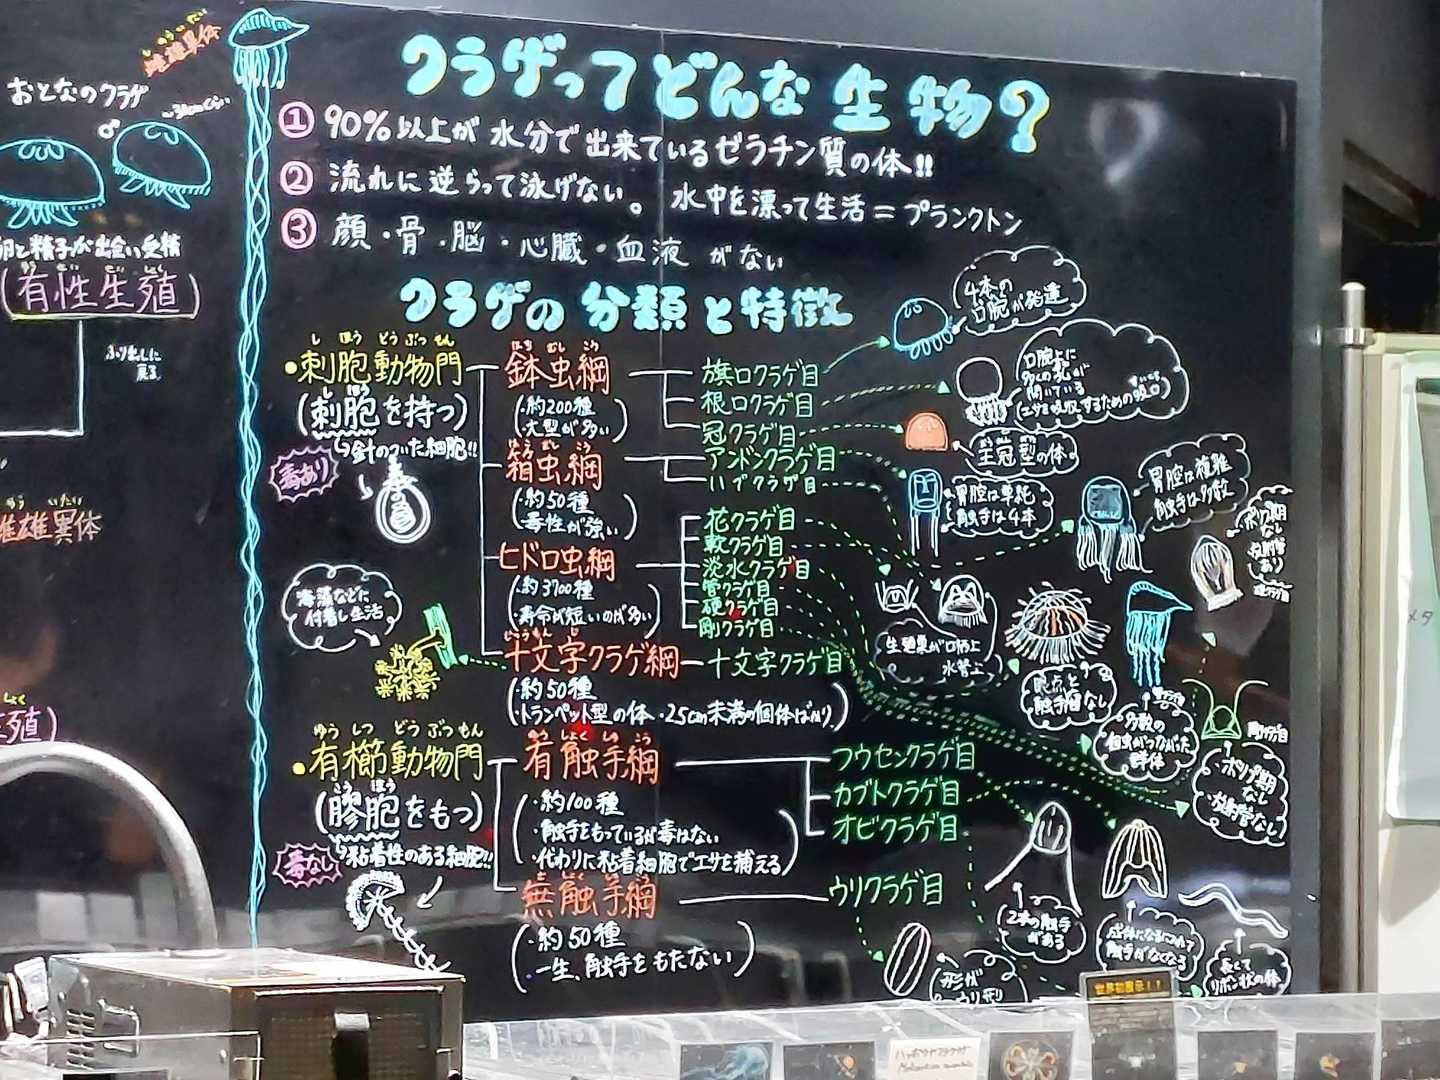 クラゲってどんな生物?
① 90%以上が水分で出来ているゼラチン質の体!!
② 流れに逆らって泳げない。 水中を漂って生活=プランクトン
③ 顔・骨・脳・心臓・血液がない
おとなのクラゲ
♂
卵と精子が出会い受精
(有性生殖)
雌雄異体
クラゲの分類と特徴
しほうどうぶつもん
・刺胞動物門
(刺胞を持つ)
針のついた細胞!!
毒あり
はちむしこう
鉢虫綱
・約200種
・大型が多い
旗口クラゲ目
根口クラゲ目
冠クラゲ目
はこむしこう
箱虫綱
・約50種
・毒性が強い
アンドンクラゲ目
ハブクラゲ目
ヒドロ虫綱
・約3700種
・寿命が短いのが多い
花クラゲ目
軟クラゲ目
淡水クラゲ目
管クラゲ目
硬クラゲ目
剛クラゲ目
十文字クラゲ綱
・約50種
・トランペット型の体・2.5cm未満の個体ばかり
十文字クラゲ目
海藻などに
付着し生活
4本の
口腕が発達
口腕上に
多くの孔が
開いている
(エサを吸収するための吸口)
王冠型の体。
胃腔は単純
触手は4本
胃腔は複雑
触手は多数
生殖巣が口柄上
水管上
眼点と
触手瘤なし
多数の
個虫がつながった
群体
ポリプ期
なし
放射管なし
ポリプ期
なし
放射管
あり
ゆうしつどうぶつもん
・有櫛動物門
(膠胞をもつ)
粘着性のある細胞!!
毒なし
ゆうしょくしゅこう
有触手綱
・約100種
・触手をもっているが毒はない
・代わりに粘着細胞でエサを捕える
フウセンクラゲ目
カブトクラゲ目
オビクラゲ目
無触手綱
・約50種
・一生、触手をもたない
ウリクラゲ目
2本の触手
がある
成体になるにつれて
触手がなくなる
長くて
リボン状の体
形が
ウリ形
世界初展示!!